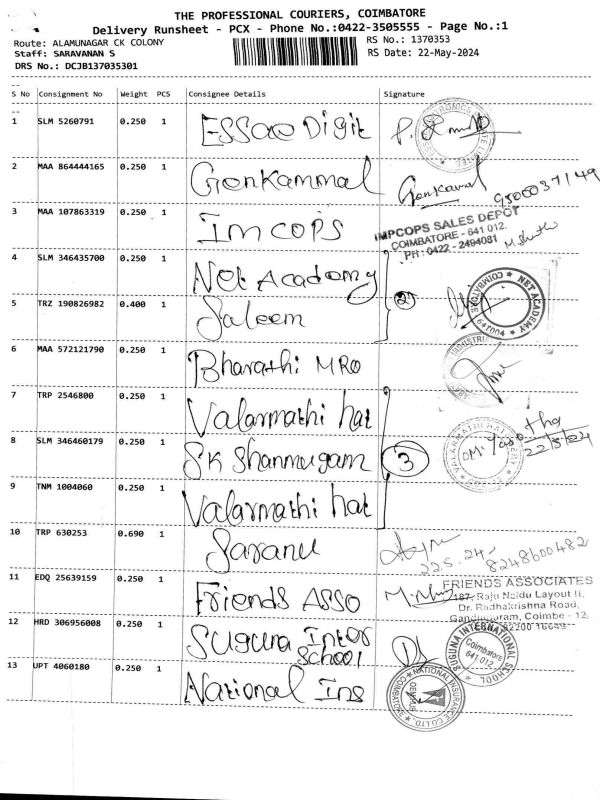 THE PROFESSIONAL COURIERS, COIMBATORE
Delivery Runsheet - PCX - Phone No.:0422-3505555 - Page No.:1
Route: ALAMUNAGAR CK COLONY
RS No.: 1370353
Staff: SARAVANAN S
RS Date: 22-May-2024
DRS No.: DCJB137035301
S No Consignment No Weight PCS Consignee Details Signature
1 SLM 5260791 0.250 1 ESSae Digit
2 MAA 864444165 0.250 1 Gonkammal Gonkammal 9500037149
3 MAA 107863319 0.250 1 Imcops
IMPCOPS SALES DEPOT
COIMBATORE - 641 012.
PH : 0422 - 2494081
4 SLM 346435700 0.250 1 Net Academy
NET ACADEMY COIMBATORE 641004
5 TRZ 190826982 0.400 1 Saleem 2
6 MAA 572121790 0.250 1 Bharathi MRO
7 TRP 2546800 0.250 1 Valarmathi hat
8 SLM 346460179 0.250 1 SK Shanmugam 3
22/5/24
9 TNM 1004060 0.250 1 Valarmathi hat
10 TRP 630253 0.690 1 Saranu
22.5.24, 8248600482
11 EDQ 25639159 0.250 1 Friends Asso
FRIENDS ASSOCIATES
187, Raju Naidu Layout II,
Dr. Radhakrishna Road,
Gandhipuram, Coimbe - 12
12 HRD 306956008 0.250 1 Suguna Inter School
SUGUNA INTERNATIONAL SCHOOL Coimbatore 641 012
13 UPT 4060180 0.250 1 National Ins
NATIONAL INSURANCE CO LTD. COIMBATORE